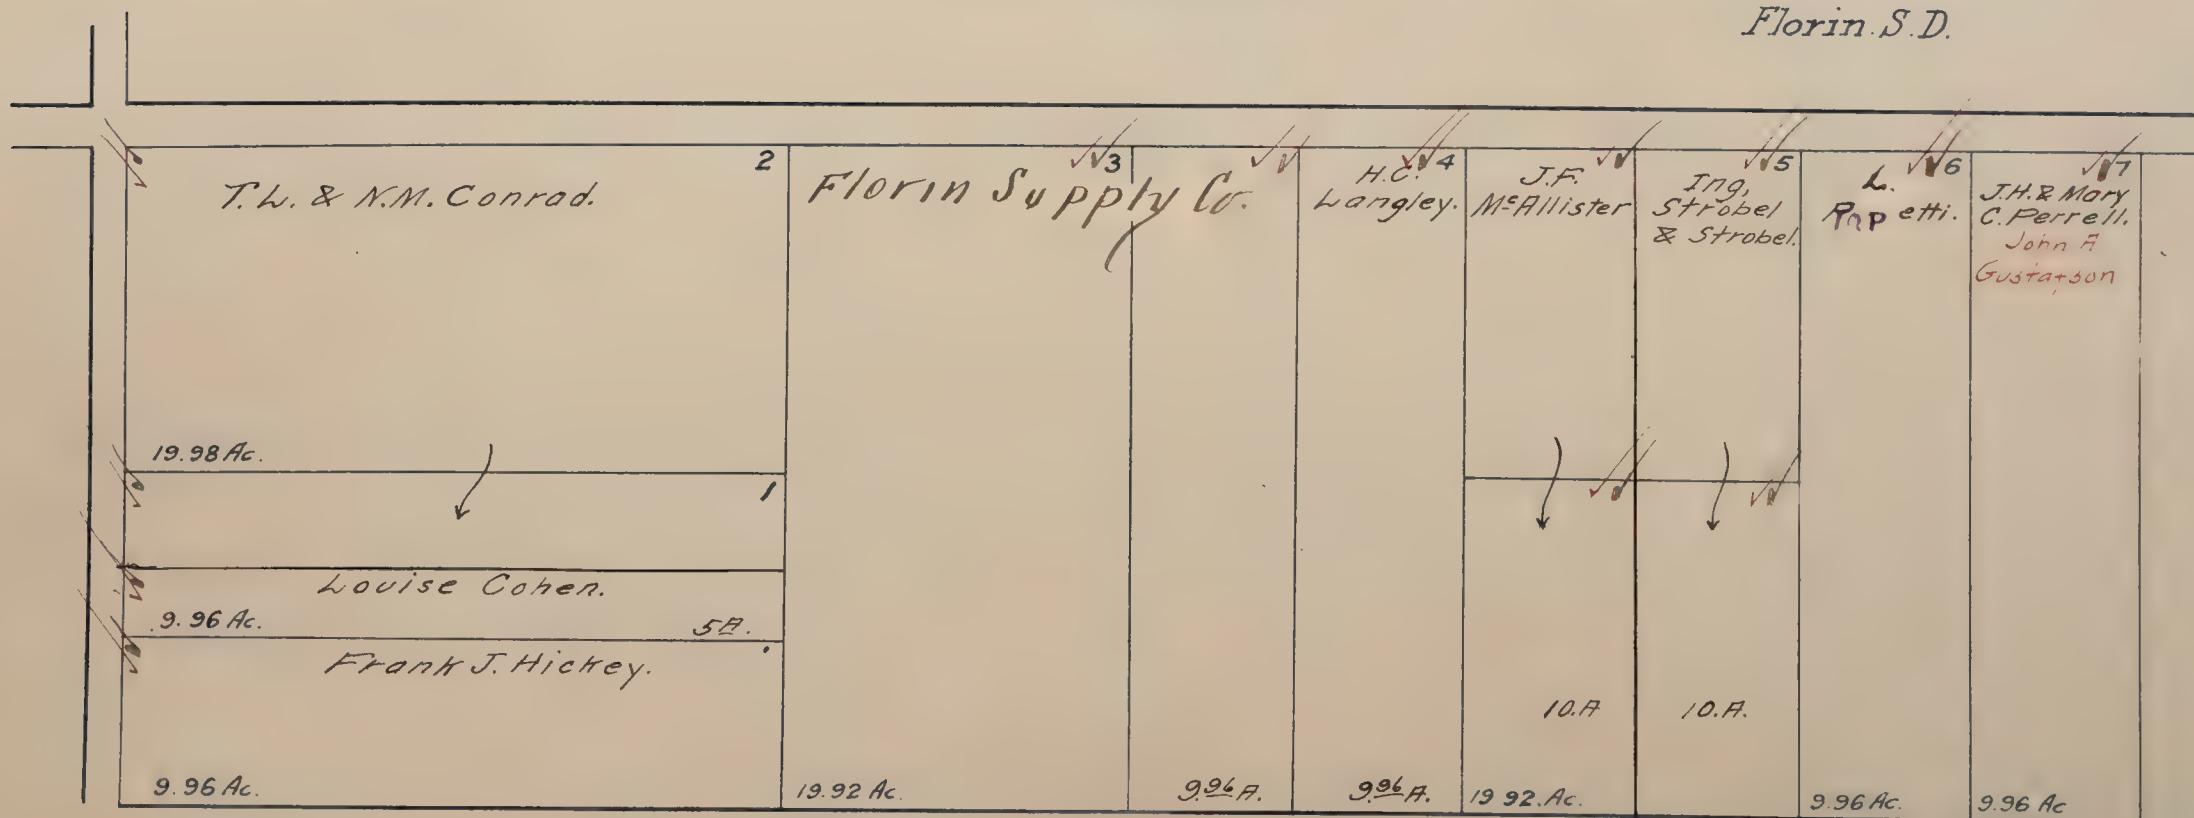 Florin. S. D.
2
T. L. & N. M. Conrad.
19.98 Ac.
1
Louise Cohen.
9.96 Ac.
5 A.
Frank J. Hickey.
9.96 Ac.
3
Florin Supply Co.
19.92 Ac.
9.96 A.
4
H.C.
Langley.
9.96 A.
J.F.
McAllister
10.A
19 92. Ac.
5
Ing,
Strobel
& Strobel.
10.A.
6
L.
etti.
9.96 Ac.
7
J.H. & Mary
C. Perrell.
John A
Gustafson
9.96 Ac